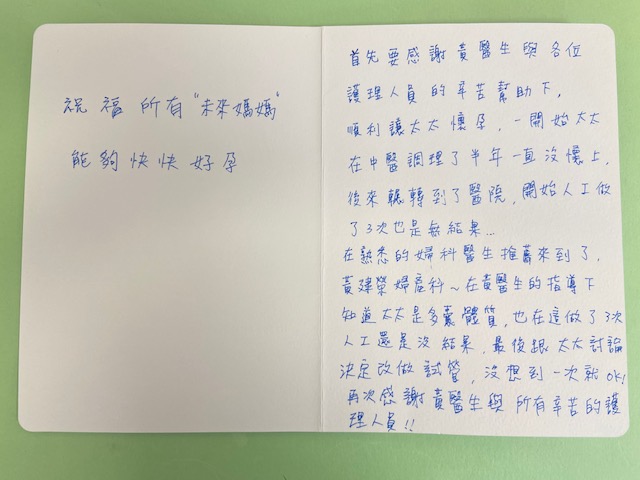 祝福所有"未來媽媽"
能夠快快好孕
首先要感謝黃醫生與各位
護理人員的辛苦幫助下,
順利讓太太懷孕,一開始太太
在中醫調理了半年一直沒懷上,
後來輾轉到了醫院,開始人工做
了3次也是無結果...
在熟悉的婦科醫生推薦來到了,
黃建榮婦產科~在黃醫生的指導下
知道太太是多囊體質,也在這做了3次
人工還是沒結果,最後跟太太討論
決定改做試管,沒想到一次就OK!
再次感謝黃醫生與所有辛苦的護
理人員!!